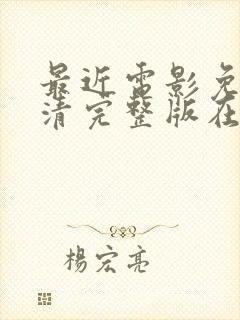 最近电影免
清完整版在
楊宏亮